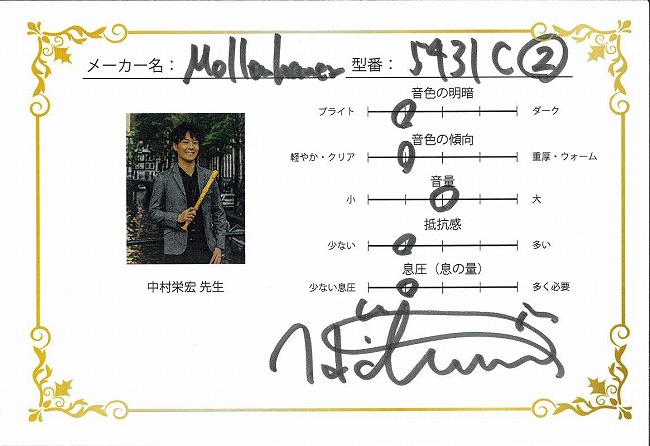 メーカー名： Mollenhauer 型番： 5431C②
音色の明暗
ブライト ダーク
音色の傾向
軽やか・クリア 重厚・ウォーム
音量
小 大
抵抗感
少ない 多い
息圧（息の量）
少ない息圧 多く必要
中村栄宏 先生